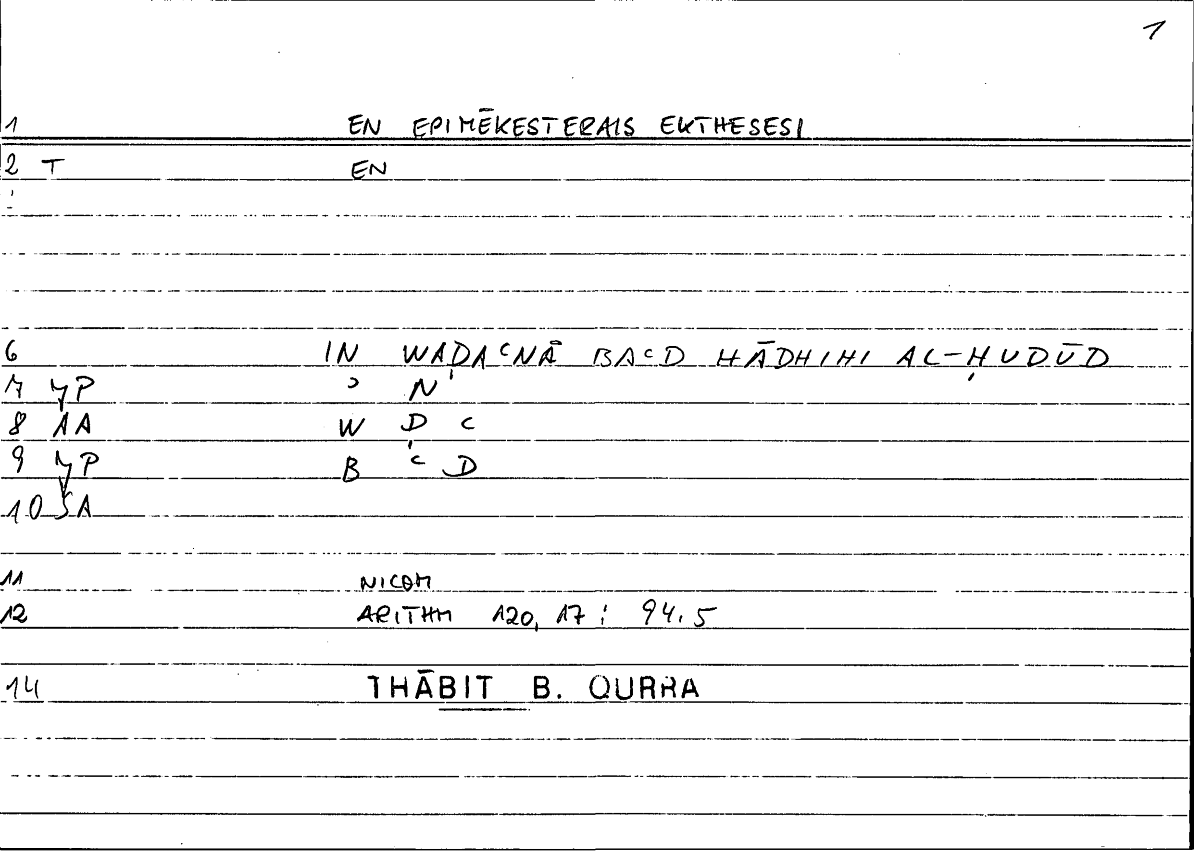 1
1 EN EPIMĒKESTERAIS EKTHESESI
2 T EN
6 IN WAḌAʿNĀ BAʿD HĀDHIHI AL-ḤUDŪD
7 YP ʾ N
8 AA W Ḍ ʿ
9 YP B ʿ D
10 SA
11 NICOM
12 ARITHM 120, 17 : 94.5
14 THĀBIT B. QURRA